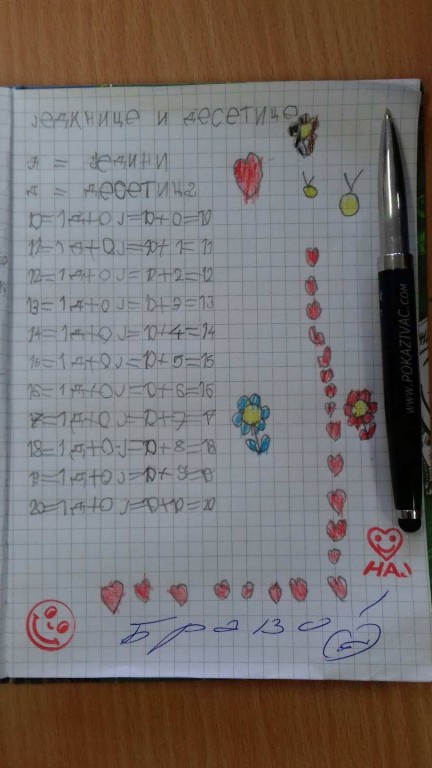 ЈЕДКНИЦЕ И ДЕСЕТИЦЕ
Ј = ЈЕДИНИ
Д = ДЕСЕТИЦ2
10=1Д+0Ј=10+0=10
11=1Д+0Ј=10+1=11
12=1Д+0Ј=10+2=12
13=1Д+0Ј=10+3=13
14=1Д+0Ј=10+4=14
15=1Д+0Ј=10+5=15
16=1Д+0Ј=10+6=16
17=1Д+0Ј=10+7=17
18=1Д+0Ј=10+8=18
19=1Д+0Ј=10+9=19
20=1Д+0Ј=10+10=20
www.POKAZIVAC.com
НАЈ
Браво!